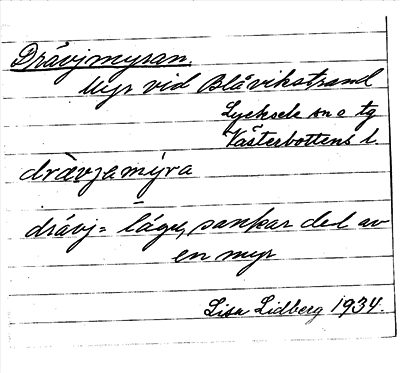 Dråvjmyran.
Myr vid Blåvikstrand
Lycksele sn o tg
Västerbottens l.
dràvjamýra
dråvj = lägre, sankar del av
en myr
Lisa Lidberg 1934.